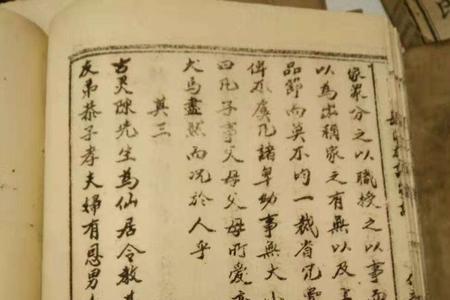 家眾分之以職授之以事而
以為出稱家之有無以及
品節而莫不均一裁省冗
備不虞凡諸卑幼事無大
曰凡子事父母父母所愛
犬馬盡然而況於人乎
其三
古灵陳先生為仙居令教其
友弟恭子孝夫婦有恩男